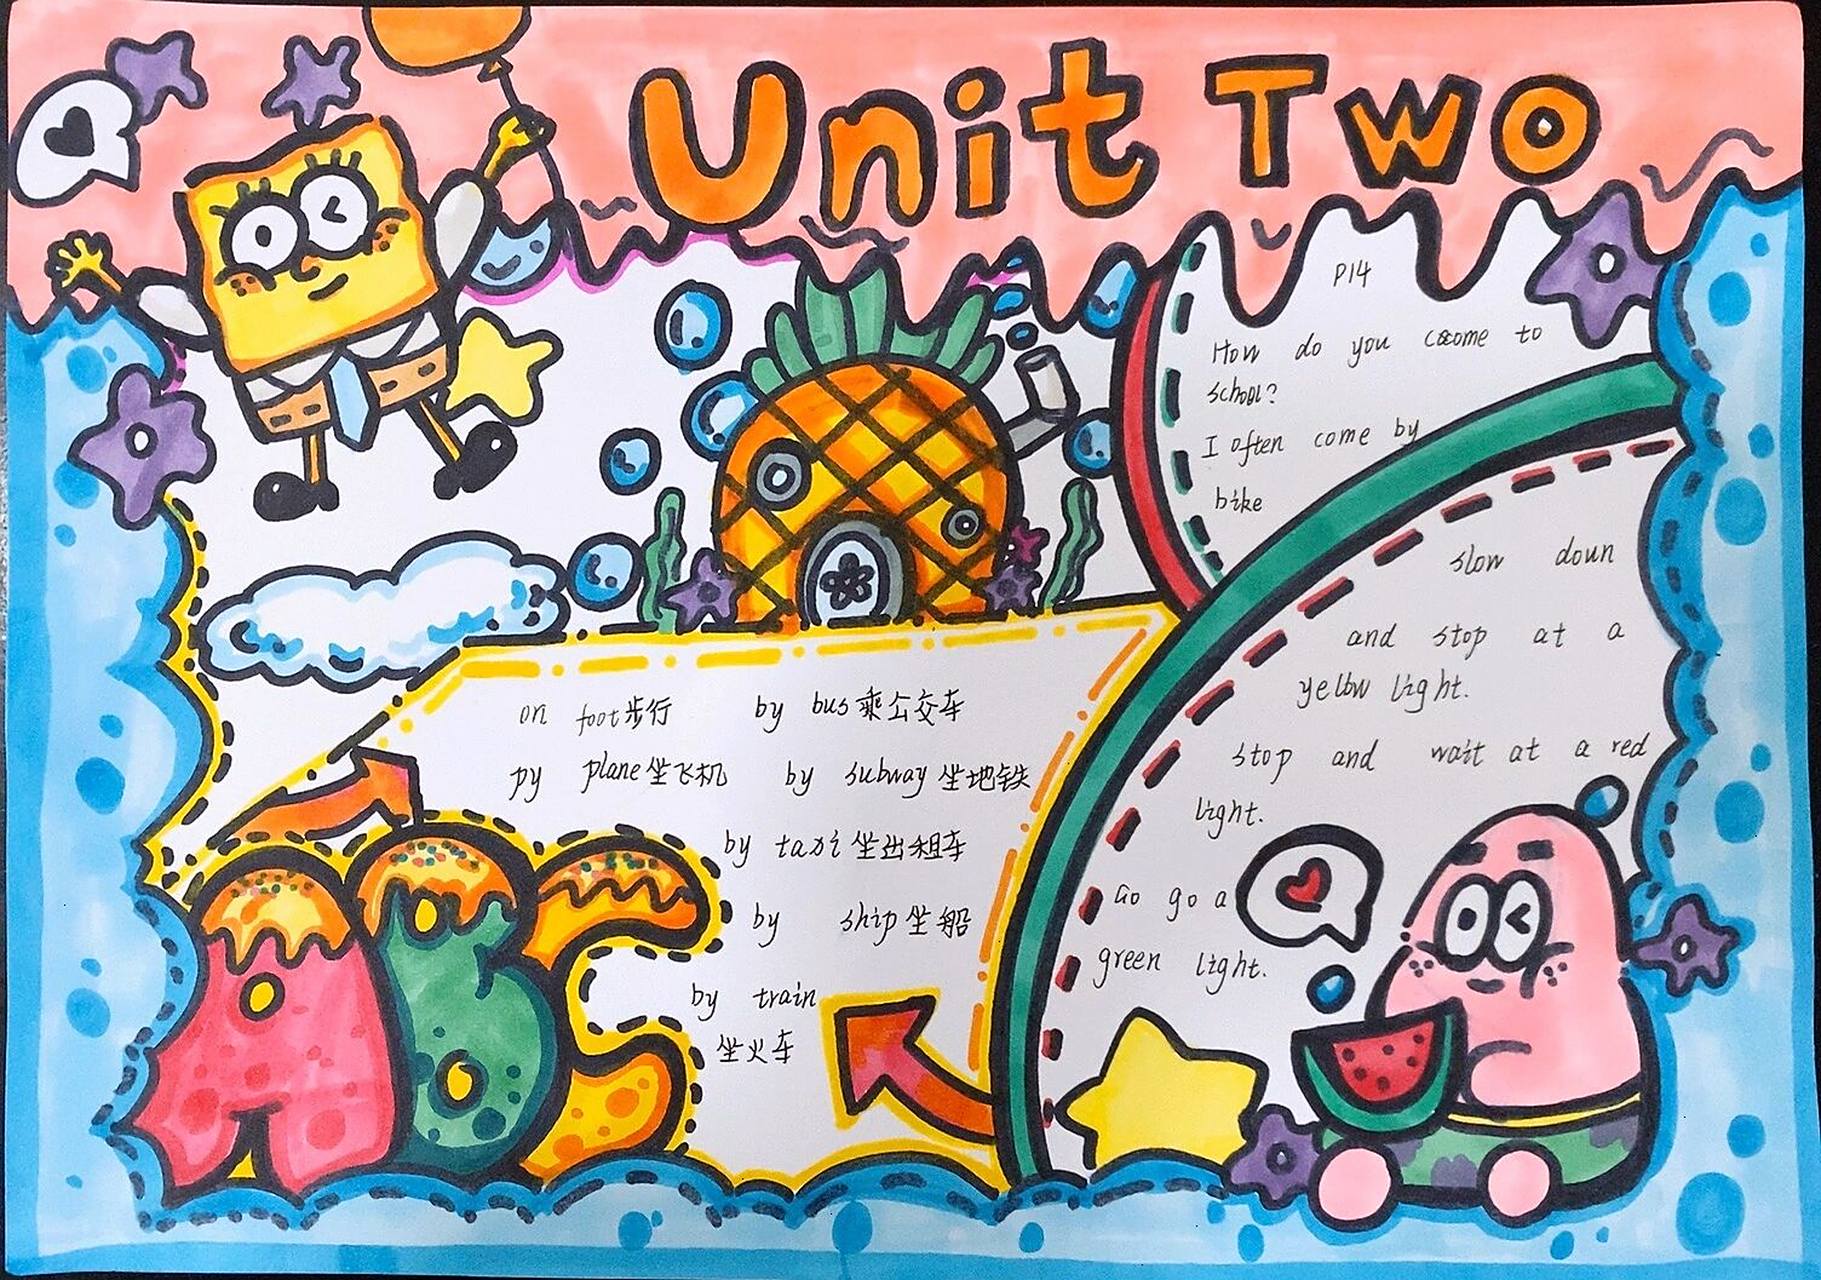 Unit Two
P14
How do you come to
school?
I often come by
bike
slow down
and stop at a
yellow light.
stop and wait at a red
light.
Go go a
green light.
on foot步行 by bus乘公交车
py plane坐飞机 by subway坐地铁
by taxi坐出租车
by ship坐船
by train
坐火车
ABC